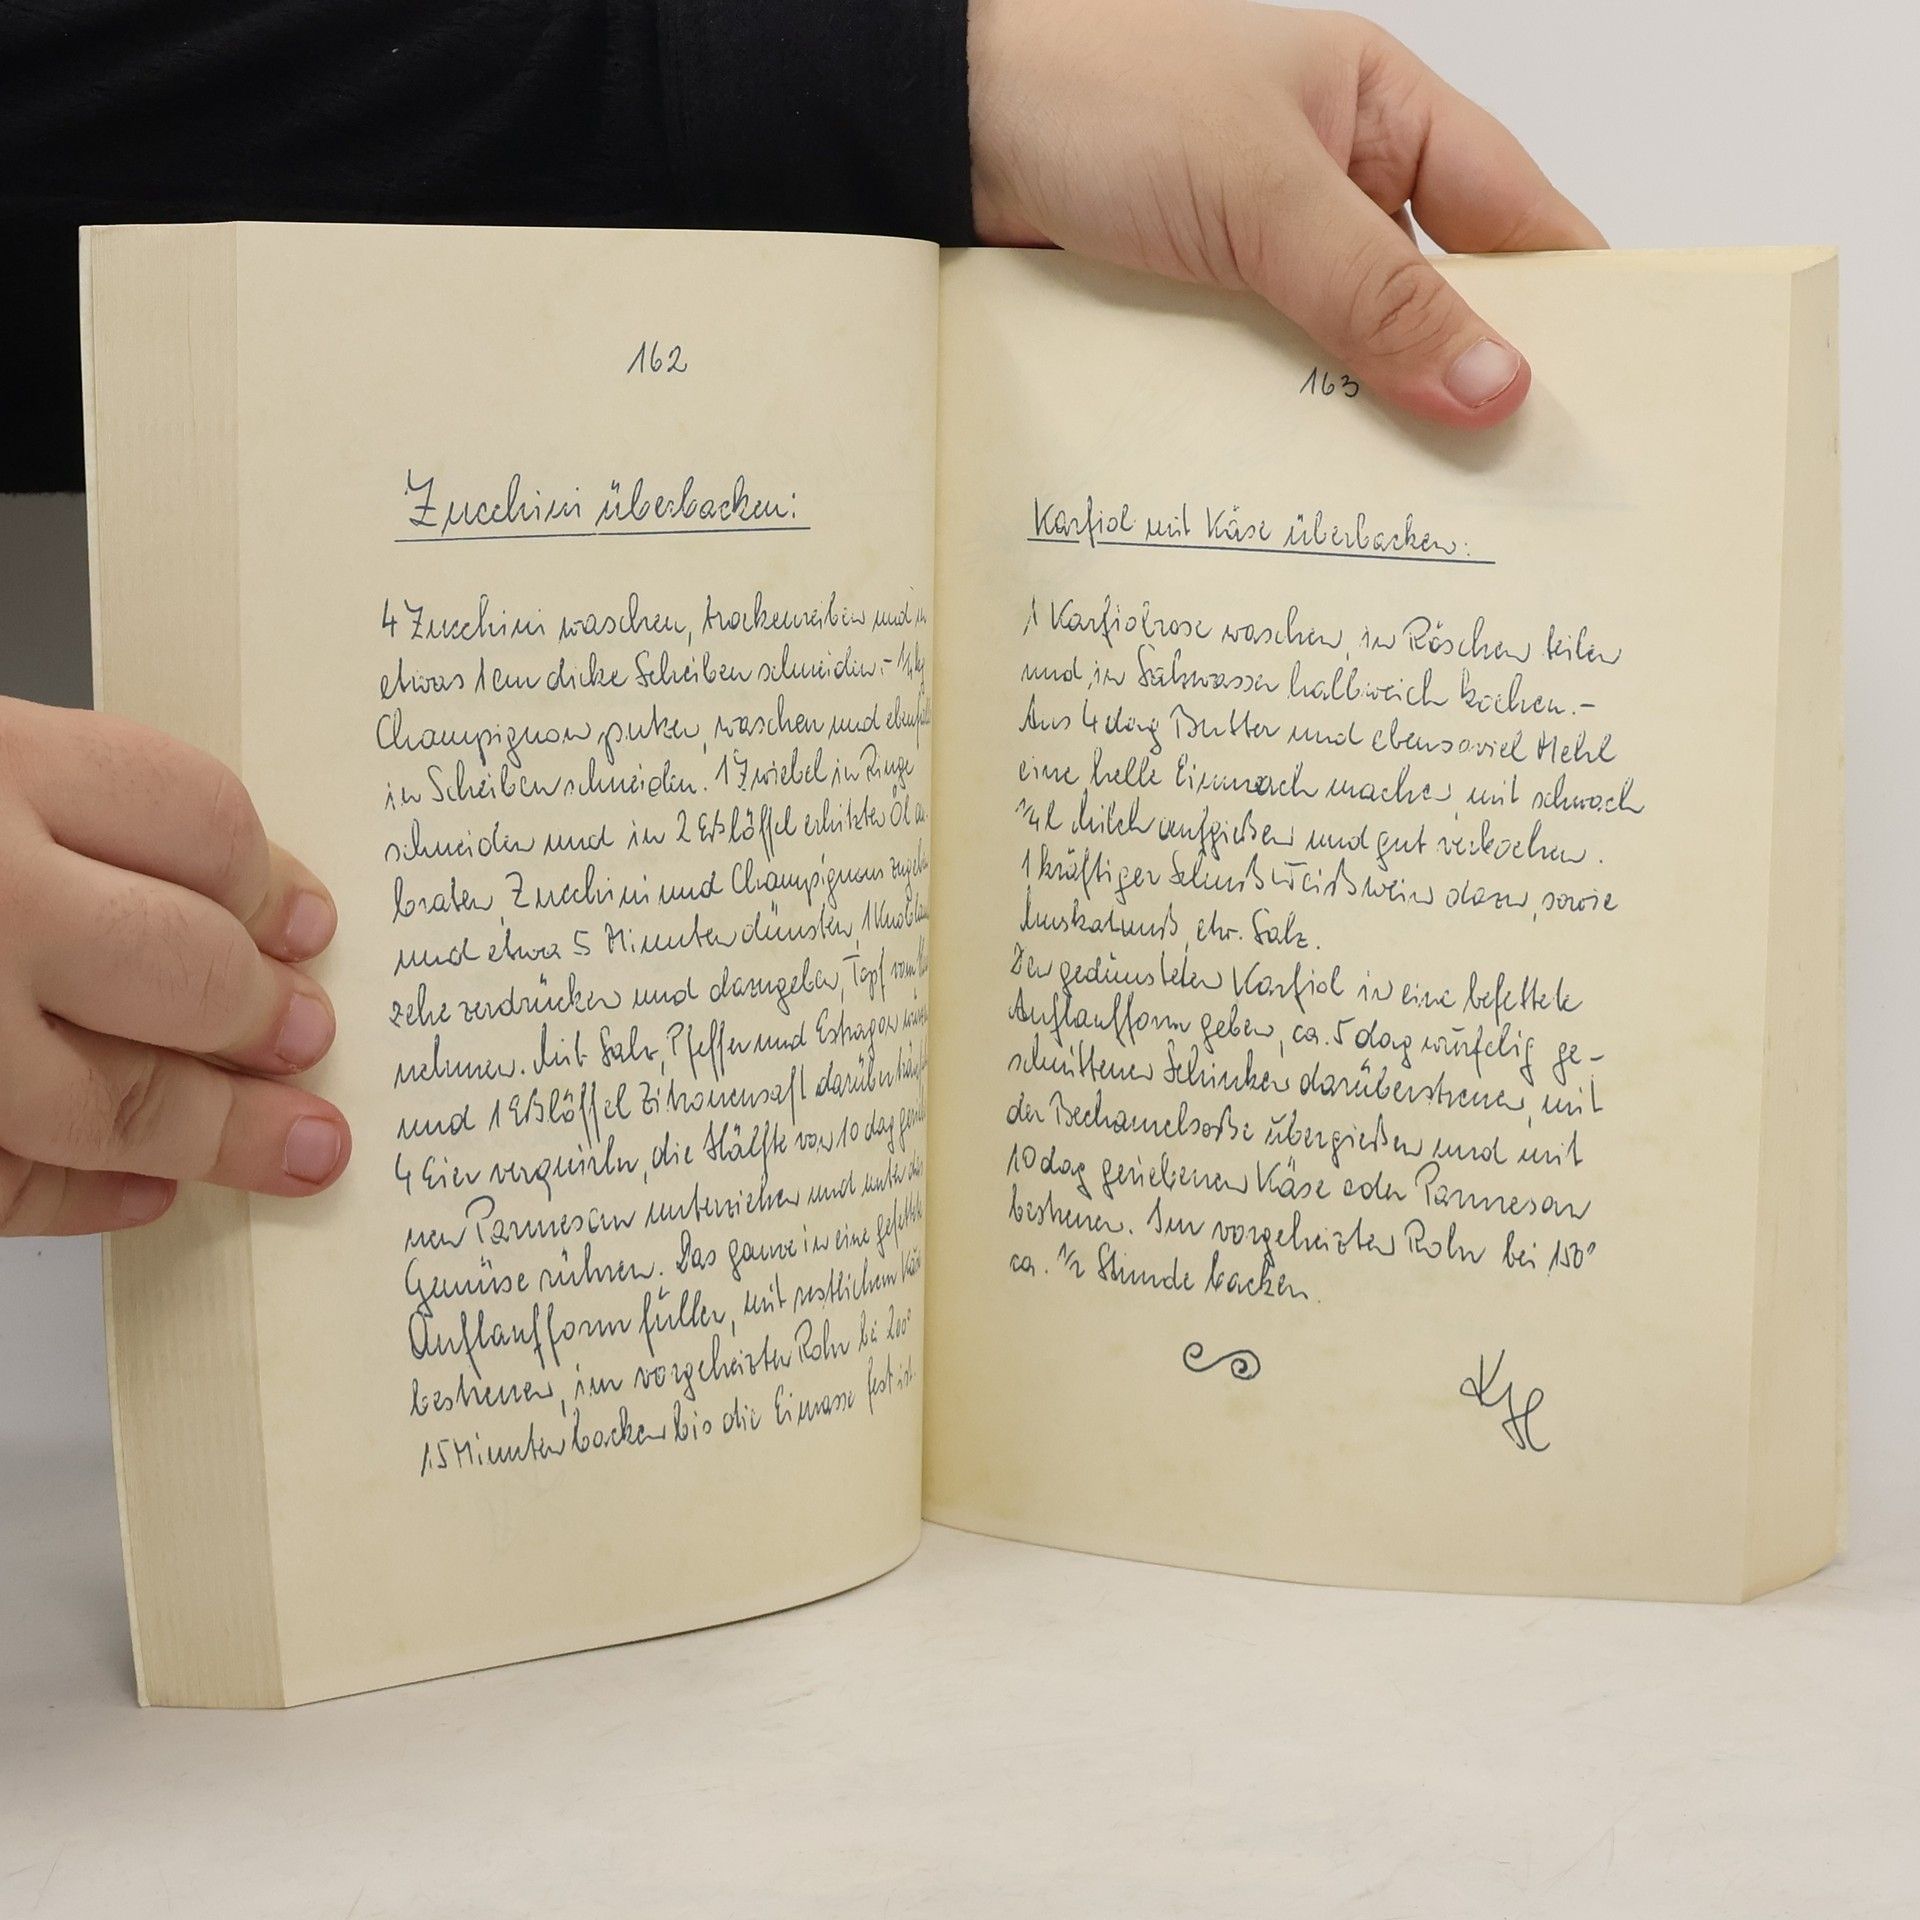 162
Zucchini überbacken:
4 Zucchini waschen, trockenreiben und in
etwas 1cm dicke Scheiben schneiden.- 1/4 kg
Champignon putzen, waschen und ebenfalls
in Scheiben schneiden. 1 Zwiebel in Ringe
schneiden und in 2 Eßlöffel erhitzten Öl an-
braten, Zucchini und Champignons zugeben
und etwa 5 Minuten dünsten, 1 Knoblauch
zehe zerdrücken und dazugeben, Topf vom
nehmen. Mit Salz, Pfeffer und Estragon würzen
und 1 Eßlöffel Zitronensaft darüber träufeln
4 Eier verquirln, die Hälfte von 10 dag geriebe
nen Parmesan unterziehen und unter das
Gemüse rühren. Das ganze in eine gefettete
Auflaufform füllen, mit restlichem Käse
bestreuen, im vorgeheizten Rohr bei 200°
15 Minuten backen bis die Eimasse fest ist.
163
Karfiol mit Käse überbacken:
1 Karfiolrose waschen, in Röschen teilen
und in Salzwasser halbweich kochen.-
Aus 4 dag Butter und ebensoviel Mehl
eine helle Einmach machen, mit schwach
1/4 l Milch aufgießen und gut verkochen.
1 kräftiger Schuß Weißwein dazu, sowie
Muskatnuß, etw. Salz.
Den gedünsteten Karfiol in eine befettete
Auflaufform geben, ca. 5 dag würfelig ge-
schnittenen Schinken darüberstreuen, mit
der Bechamelsoße übergießen und mit
10 dag geriebenen Käse oder Parmesan
bestreuen. Im vorgeheizten Rohr bei 150°
ca. 1/2 Stunde backen.
KH